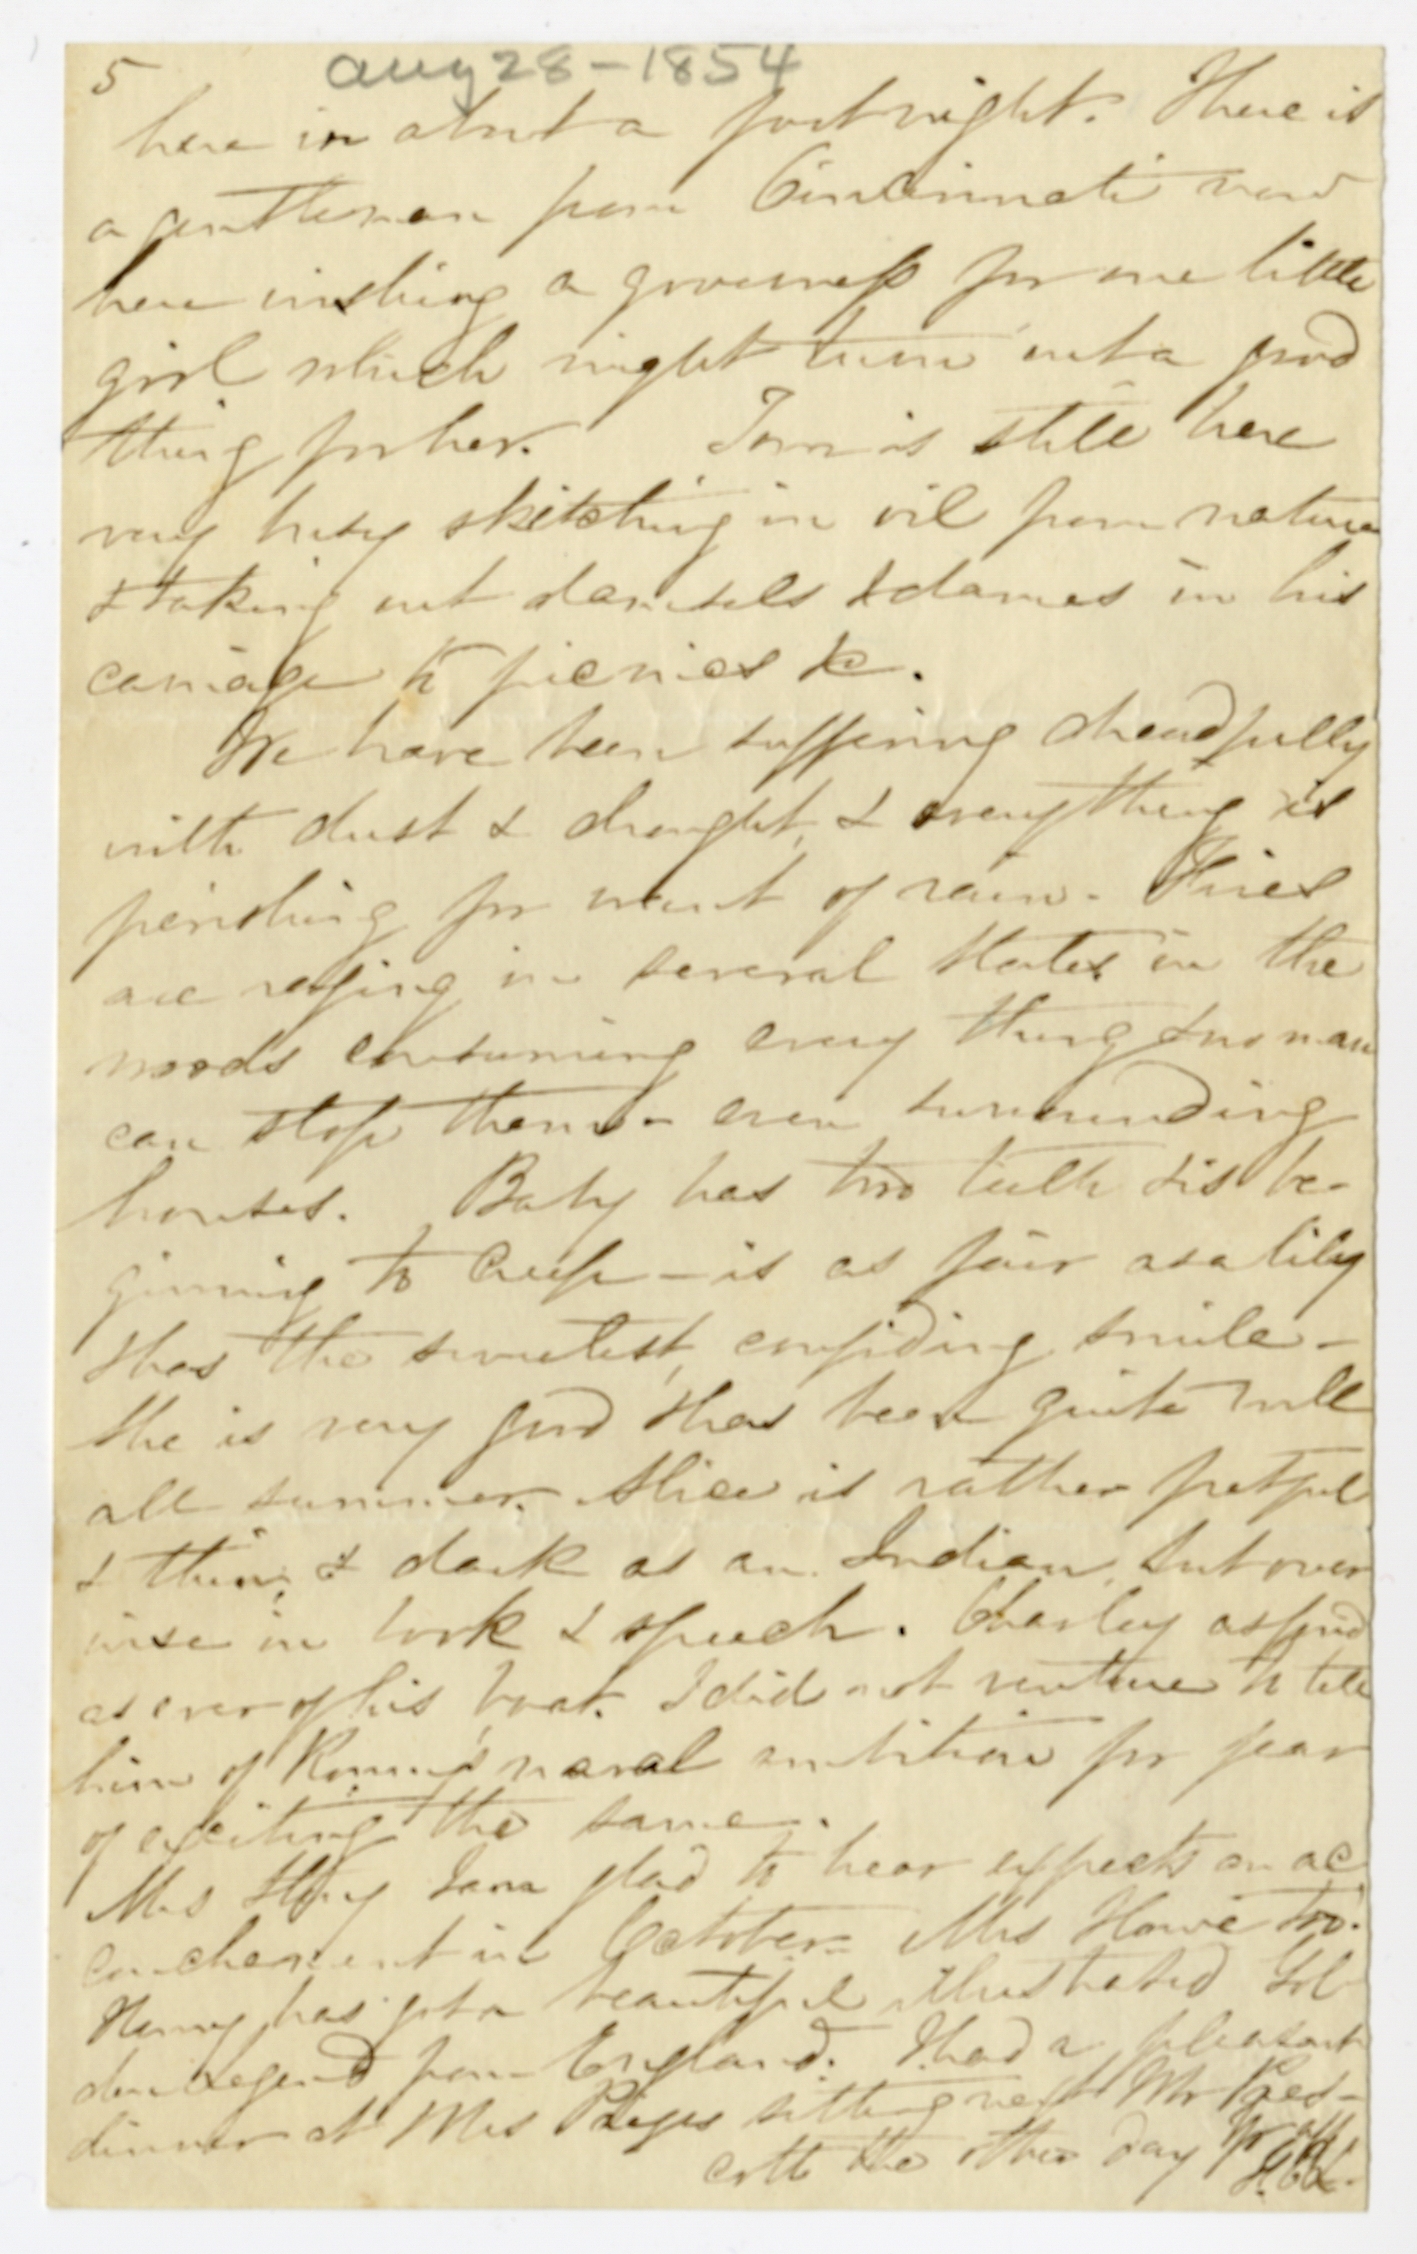 5
Aug 28 - 1854
here in about a fortnight. There is
a gentleman from Cincinnati now
here wishing a governess for one little
girl which might turn out a good
thing for her. Tom is still here
very busy sketching in oil from nature
& taking out damsels & dames in his
carriage to picnics &c.
We have been suffering dreadfully
with dust & drought, & everything is
perishing for want of rain. Fires
are raging in several States in the
woods consuming every thing & no man
can stop them - even surrounding
houses. Baby has two teeth & is be-
ginning to creep - is as fair as a lily
& has the sweetest, confiding smile -
She is very good & has been quite well
all summer. Alice is rather fretful
& thin, & dark as an Indian, but over
wise in look & speech. Charley as fond
as ever of his boat. I did not venture to tell
him of Ronny's naval ambition for fear
of exciting the same.
Mrs Story I am glad to hear expects an ac
couchement in October - Mrs Howe too.
Henry has got a beautiful illustrated Gol
den Legend from England. I had a pleasant
dinner at Mrs sitting next Mr Pres-
cott the other day Yr aff
F.E.L.